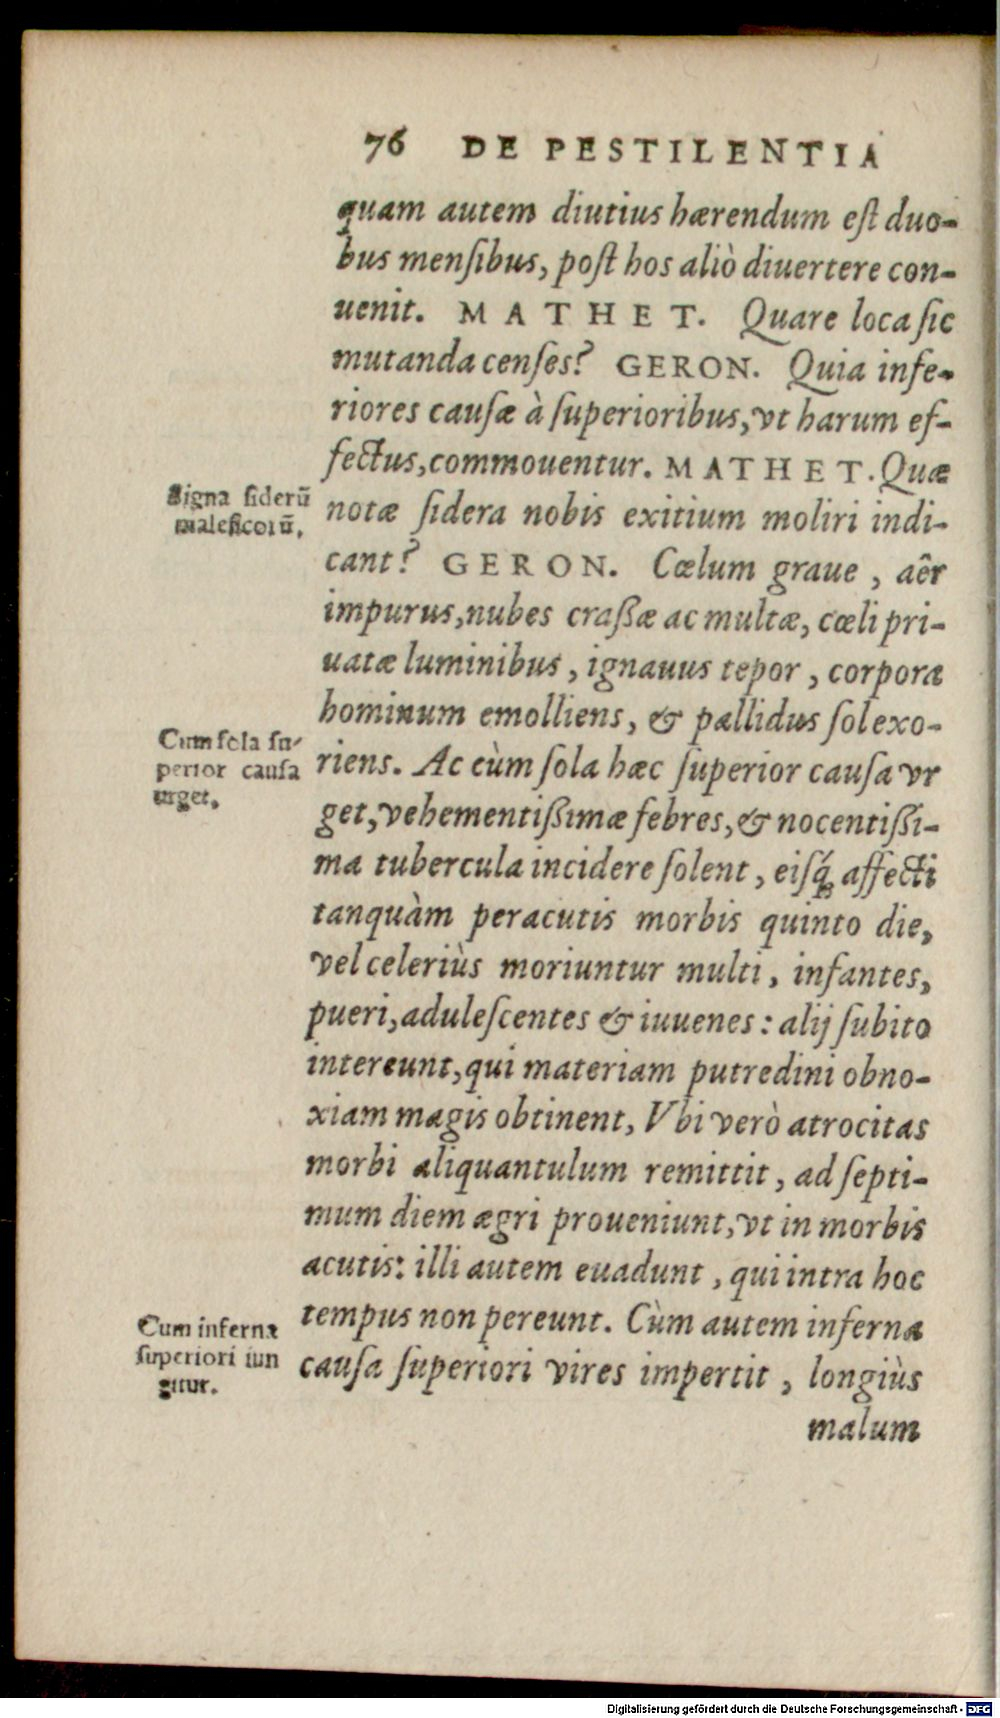 76 DE PESTILENTIA
quam autem diutius hærendum eſt duo-
bus menſibus, poſt hos aliò diuertere con-
uenit. MATHET. Quare loca ſic
mutanda cenſes? GERON. Quia infe-
riores cauſæ à ſuperioribus, vt harum ef-
fectus, commouentur. MATHET. Quæ
Signa ſiderū
maleficorū.
notæ ſidera nobis exitium moliri indi-
cant? GERON. Cœlum graue, aêr
impurus, nubes craßæ ac multæ, cœli pri-
uatæ luminibus, ignauus tepor, corpora
hominum emolliens, & pallidus ſol exo-
Cum ſola ſu-
perior cauſa
urget.
riens. Ac cùm ſola hæc ſuperior cauſa vr
get, vehementißimæ febres, & nocentißi-
ma tubercula incidere ſolent, eiſq́; affecti
tanquàm peracutis morbis quinto die,
vel celeriùs moriuntur multi, infantes,
pueri, aduleſcentes & iuuenes: alij ſubito
intereunt, qui materiam putredini obno-
xiam magis obtinent, Vbi verò atrocitas
morbi aliquantulum remittit, ad ſepti-
mum diem ægri proueniunt, vt in morbis
acutis: illi autem euadunt, qui intra hoc
tempus non pereunt. Cùm autem inferna
Cum inferna
ſuperiori iun
gitur.
cauſa ſuperiori vires impertit, longiùs
malum
Digitalisierung gefördert durch die Deutsche Forschungsgemeinschaft - DFG